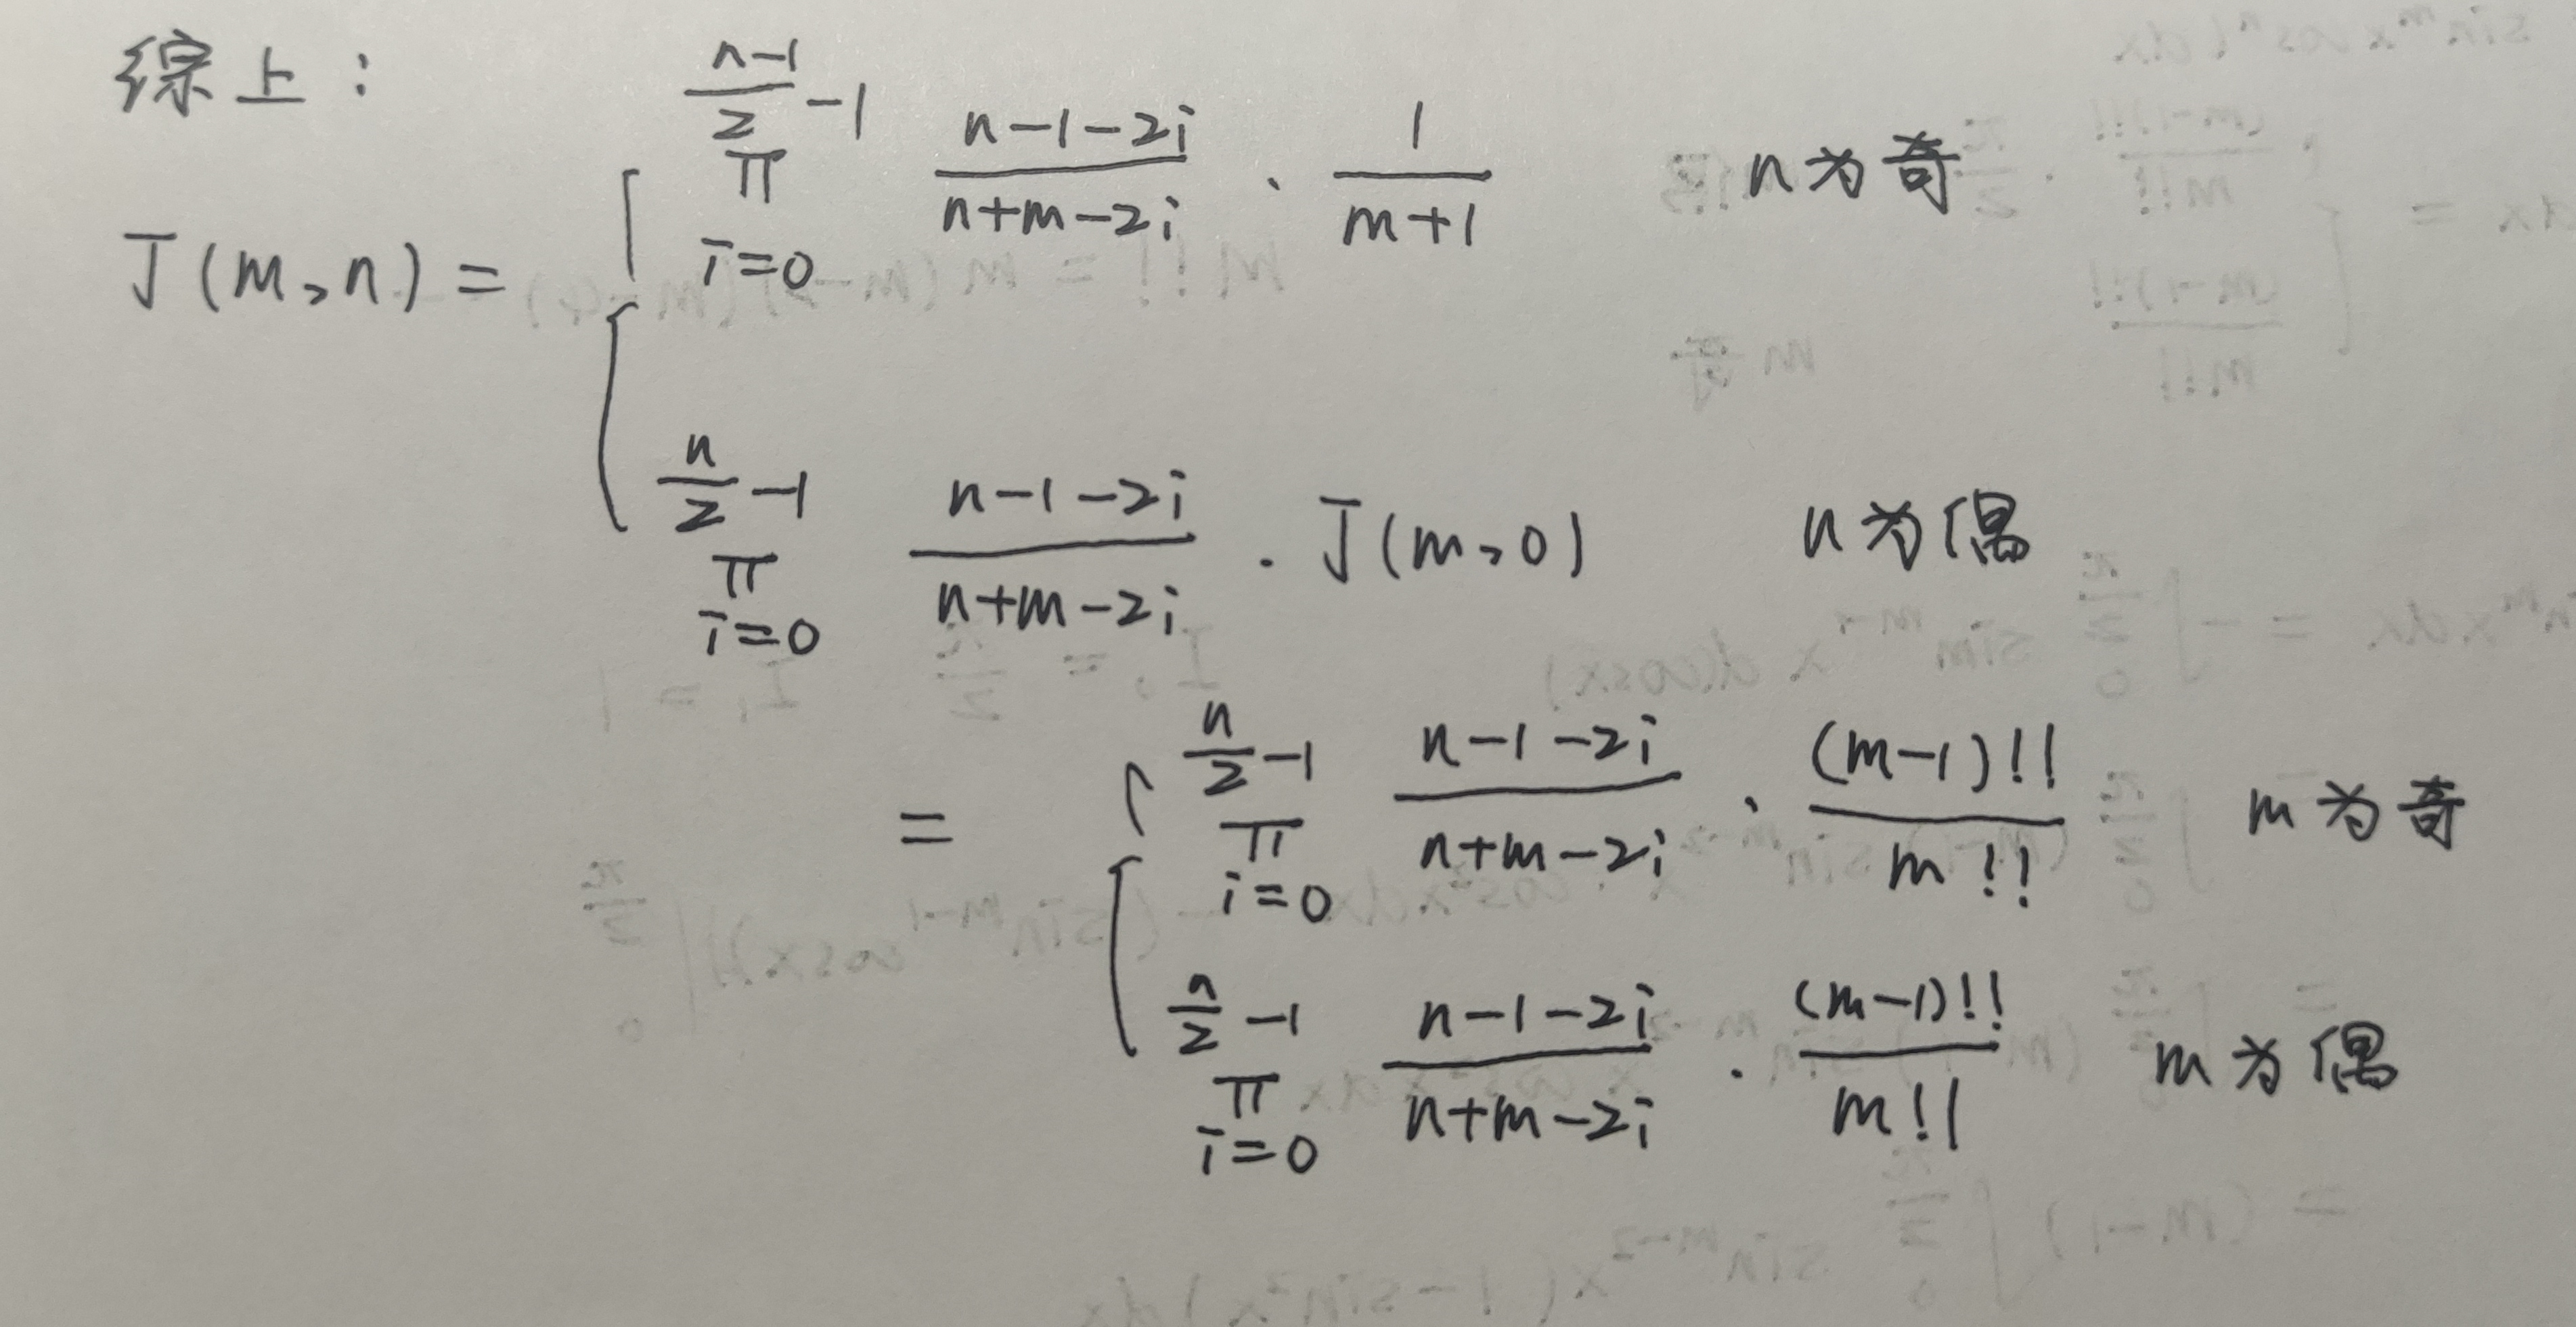 综上：
J(m,n) = { \prod_{i=0}^{\frac{n-1}{2}-1} \frac{n-1-2i}{n+m-2i} · \frac{1}{m+1} n为奇
\prod_{i=0}^{\frac{n}{2}-1} \frac{n-1-2i}{n+m-2i} · J(m,0) n为偶
= { \prod_{i=0}^{\frac{n}{2}-1} \frac{n-1-2i}{n+m-2i} · \frac{(m-1)!!}{m!!} m为奇
\prod_{i=0}^{\frac{n}{2}-1} \frac{n-1-2i}{n+m-2i} · \frac{(m-1)!!}{m!!} m为偶